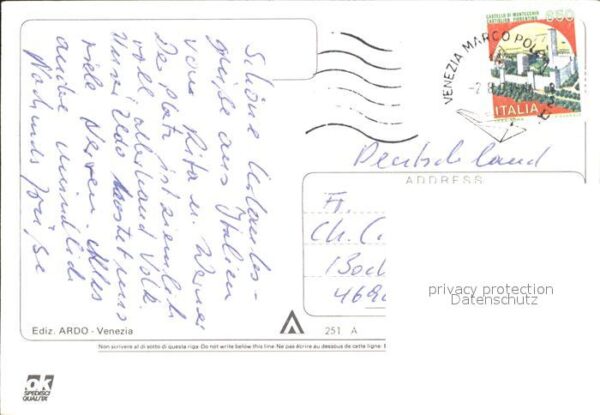 Schöne Urlaubs-
grüße aus Italien
von Rita u. Werner
Der Platz ist ziemlich
voll, allerhand Volk.
Unser kostet uns
viele Nerven. Alles
andre mündlich
CASTELLO DI MONTECCHIO
CASTIGLION FIORENTINO
650
ITALIA
VENEZIA MARCO POLO
Deutschland
ADDRESS
Fr.
Ch. C
Boch
469
privacy protection
Datenschutz
Ediz. ARDO - Venezia
251 A
Non scrivere al di sotto di questa riga · Do not write below this line · Ne pas écrire au dessous de cette ligne
ok
SPEDISCI
QUALITÀ!